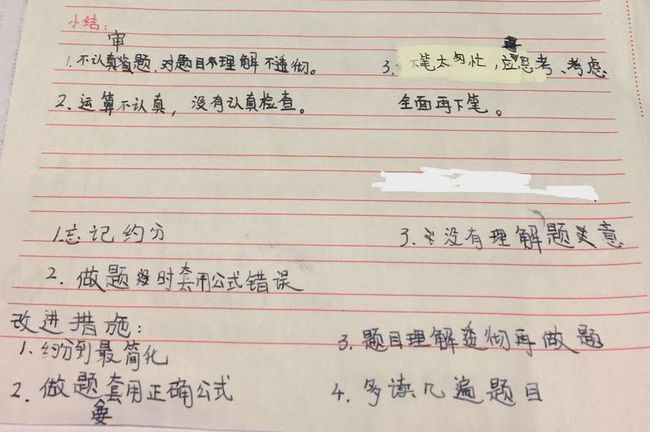 小结:
审
1. 不认真审题,对题目本理解不透彻。
2. 运算不认真,没有认真检查。
3. 下笔太匆忙,应思考、考虑
全面再下笔。
1. 忘记约分
2. 做题时套用公式错误
3. 没有理解题意
改进措施:
1. 约分到最简化
2. 做题要套用正确公式
3. 题目理解透彻再做题
4. 多读几遍题目